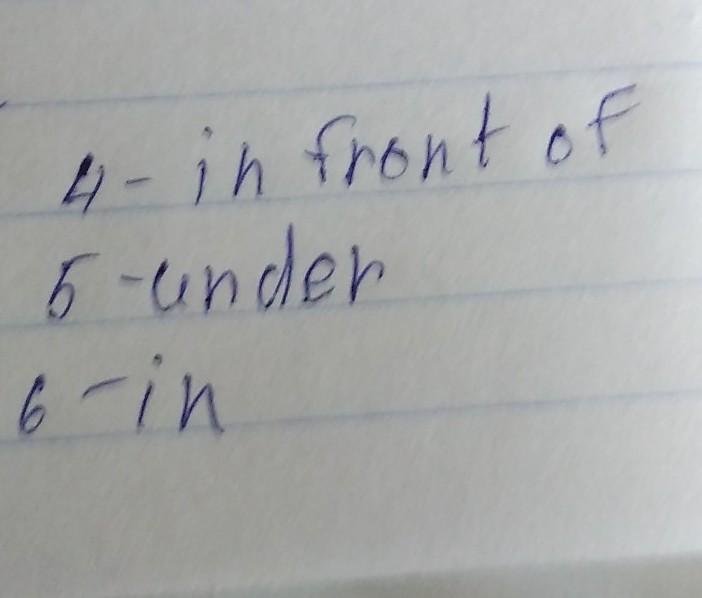 4 - in front of
5 - under
6 - in